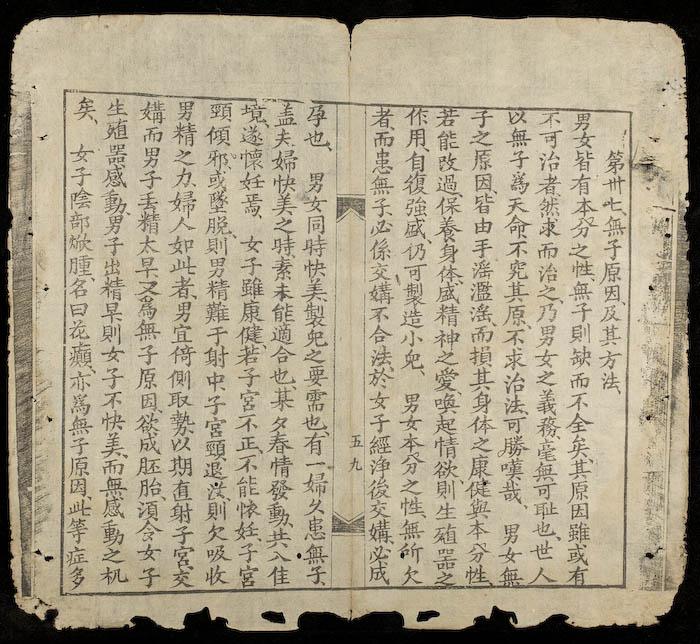 第卅七、無子原因、及其方法、
男女皆有本分之性、無子則缺而不全矣、其原因雖或有
不可治者、然求而治之、乃男女之義務、毫無可耻也、世人
以無子爲天命、不究其原、不求治法、可勝嘆哉、 男女無
子之原因、皆由手滛濫滛、而損其身体之康健與本分性、
若能改過保養身体、盛精神之愛、喚起情欲、則生殖器之
作用、自復強盛、仍可製造小皃、 男女本分之性、無所欠
者、而患無子、必係交媾不合法、於女子經淨後交媾、必成
五九
孕也、 男女同時快美、製皃之要需也、有一婦久患無子、
盖夫婦快美之時、素未能適合也、某夕春情發動、共入佳
境、遂懷妊焉、 女子雖康健、若子宮不正、不能懷妊、子宮
頸傾邪、或墜脱、則男精難于射中、子宮頸退
則欠吸收
男精之力、婦人如此者、男宜倚側取勢、以期直射子宮、交
媾而男子丢精太早、又爲無子原因、欲成胚胎、湏令女子
生殖器感動、男子出精早、則女子不快美、而無感動之机
矣、 女子陰部焮腫、名曰花癲、亦爲無子原因、此等症多